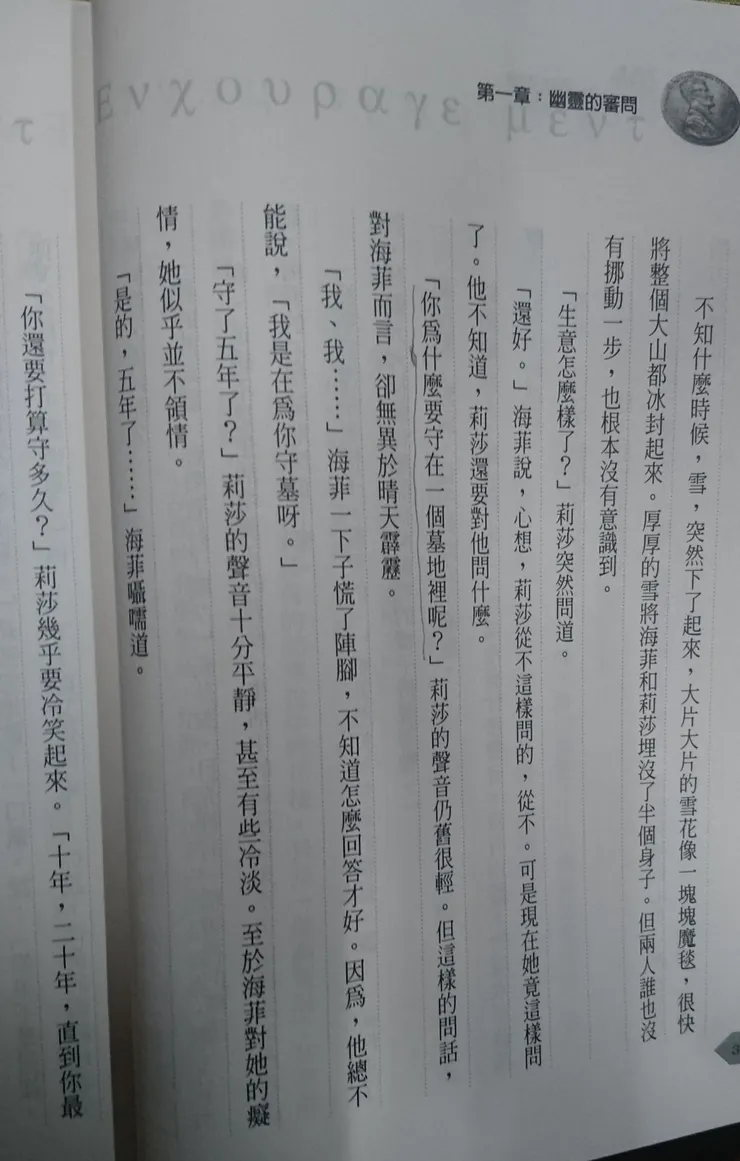 第一章：幽靈的審問
ενχουραγεμεντ
不知什麼時候，雪，突然下了起來，大片大片的雪花像一塊塊魔毯，很快
將整個大山都冰封起來。厚厚的雪將海菲和莉莎埋沒了半個身子。但兩人誰也沒
有挪動一步，也根本沒有意識到。
「生意怎麼樣了？」莉莎突然問道。
「還好。」海菲說，心想，莉莎從不這樣問的，從不。可是現在她竟這樣問
了。他不知道，莉莎還要對他問什麼。
「你爲什麼要守在一個墓地裡呢？」莉莎的聲音仍舊很輕。但這樣的問話，
對海菲而言，卻無異於晴天霹靂。
「我、我……」海菲一下子慌了陣腳，不知道怎麼回答才好。因爲，他總不
能說，「我是在爲你守墓呀。」
「守了五年了？」莉莎的聲音十分平靜，甚至有些冷淡。至於海菲對她的癡
情，她似乎並不領情。
「是的，五年了……」海菲囁嚅道。
「你還要打算守多久？」莉莎幾乎要冷笑起來。「十年，二十年，直到你最
τ
3